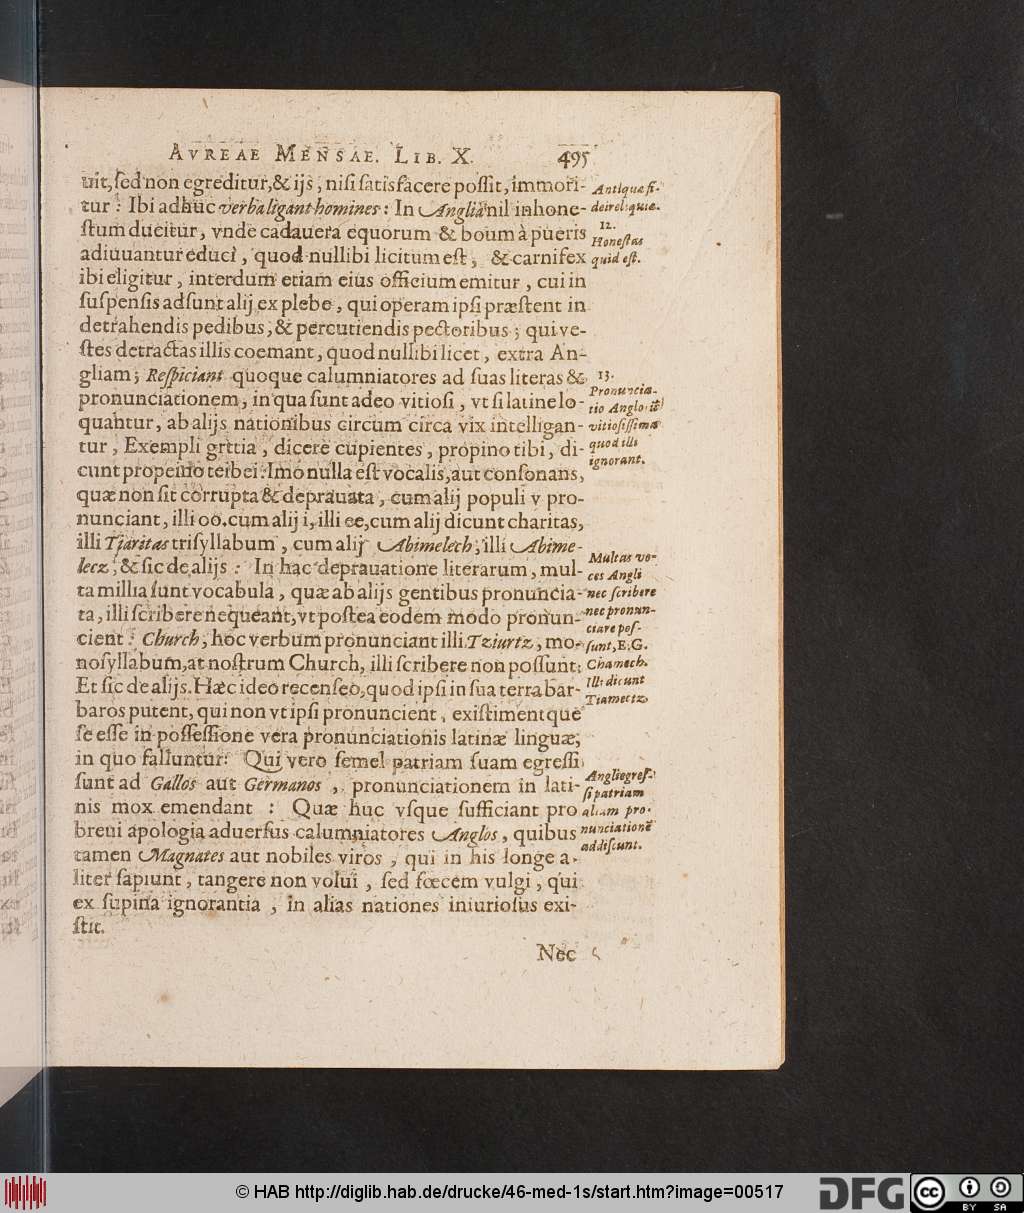 AVREAE MENSAE. LIB. X. 495
uit, sed non egreditur, & ijs, nisi satisfacere possit, immori-
tur: Ibi adhuc verba ligant homines: In Anglia nil inhone-
stum ducitur, vnde cadauera equorum & boum à pueris
adiuuantur educi, quod nullibi licitum est, & carnifex
ibi eligitur, interdum etiam eius officium emitur, cui in
suspensis adsunt alij ex plebe, qui operam ipsi præstent in
detrahendis pedibus, & percutiendis pectoribus; qui ve-
stes detractas illis coemant, quod nullibi licet, extra An-
gliam; Respiciant quoque calumniatores ad suas literas &
pronunciationem, in qua sunt adeo vitiosi, vt si latine lo-
quantur, ab alijs nationibus circum circa vix intelligan-
tur, Exempli grttia, dicere cupientes, propino tibi, di-
cunt propeino teibei: Imo nulla est vocalis, aut consonans,
quæ non sit corrupta & deprauata, cum alij populi v pro-
nunciant, illi oo. cum alij i, illi ee, cum alij dicunt charitas,
illi Tjaritas trisyllabum, cum alij Abimelech, illi Abime-
lecz, & sic de alijs: In hac deprauatione literarum, mul-
ta millia sunt vocabula, quæ ab alijs gentibus pronuncia-
ta, illi scribere nequeant, vt postea eodem modo pronun-
cient: Church, hoc verbum pronunciant illi Tziurtz, mo-
nosyllabum, at nostrum Church, illi scribere non possunt:
Et sic de alijs. Hæc ideo recenseo, quod ipsi in sua terra bar-
baros putent, qui non vt ipsi pronuncient, existimentque
se esse in possessione vera pronunciationis latinæ linguæ,
in quo falluntur: Qui vero semel patriam suam egressi
sunt ad Gallos aut Germanos, pronunciationem in lati-
nis mox emendant: Quæ huc vsque sufficiant pro
breui apologia aduersus calumniatores Anglos, quibus
tamen Magnates aut nobiles viros, qui in his longe a-
liter sapiunt, tangere non volui, sed fœcem vulgi, qui
ex supina ignorantia, in alias nationes iniuriosus exi-
stit.
Nec
Antiquæ fi-
dei reliquiæ.
12.
Honestas
quid est.
13.
Pronuncia-
tio Anglorũ
vitiosissima
quod illi
ignorant.
Multas vo-
ces Angli
nec scribere
nec pronun-
ciare pos-
sunt, E.G.
Chamech.
Illi dicunt
Tiamectz
Angli egres-
si patriam
aliam pro-
nunciationẽ
addiscunt.
© HAB http://diglib.hab.de/drucke/46-med-1s/start.htm?image=00517
DFG
cc
BY SA